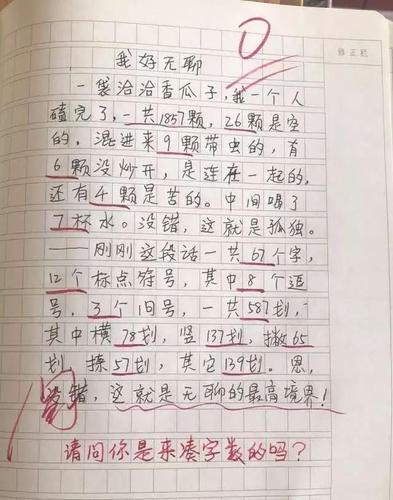 修正栏
0
我好无聊
一袋洽洽香瓜子，我一个人
磕完了，一共1857颗，26颗是空
的，混进来9颗带虫的，有
6颗没炒开，是连在一起的，
还有4颗是苦的。中间喝了
7杯水。没错，这就是孤独。
——刚刚这段话一共67个字，
12个标点符号，其中8个逗
号，3个句号，一共587划，
其中横78划，竖137划，撇65
划，捺57划，其它139划。恩，
没错，这就是无聊的最高境界！
请问你是来凑字数的吗？